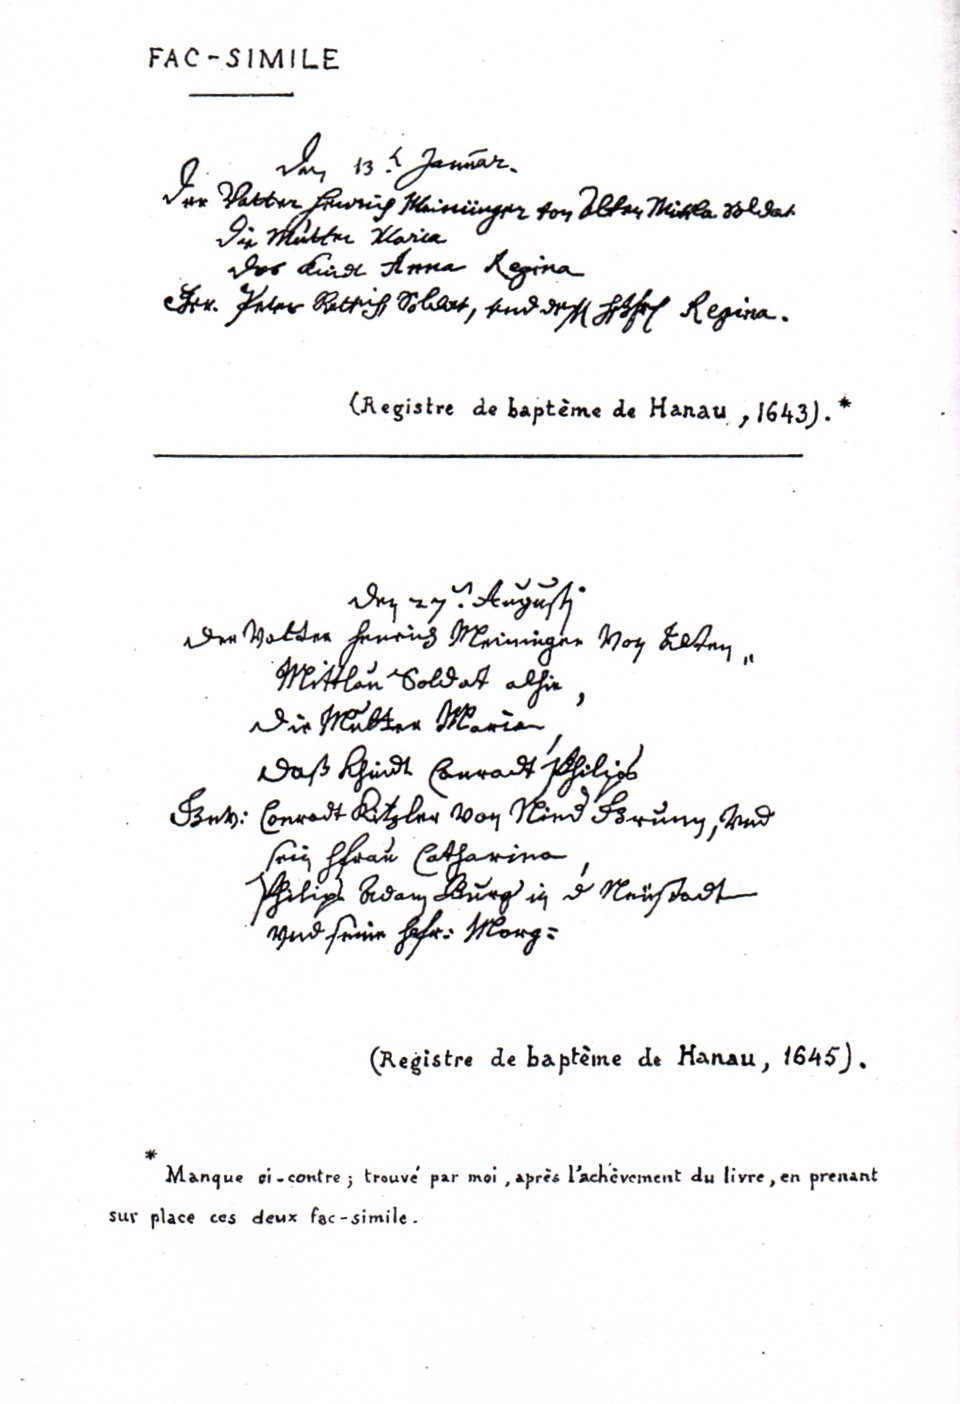 FAC-SIMILE
Den 13.t Januar.
Der Vatter Henrich Meininger von Alten Mitla Soldat
Die Mutter Maria
das Kindt Anna Regina
Gev. Peter Soldat, und Regina.
(Registre de baptême de Hanau, 1643).*
Den 27. Augusti
Der Vatter Henrich Meininger Von Alten„
Mittlau Soldat alhie,
Die Mutter Maria,
daß Khindt Conradt Philips
Gev: Conradt Kitzler von Nied Brunn, Vnd
sein hfrau Catharina,
Philips Adam Burg in d Neüstadt
vnd seine hfr: Marg:
(Registre de baptême de Hanau, 1645).
* Manque ci-contre; trouvé par moi, après l'achèvement du livre, en prenant
sur place ces deux fac-simile.